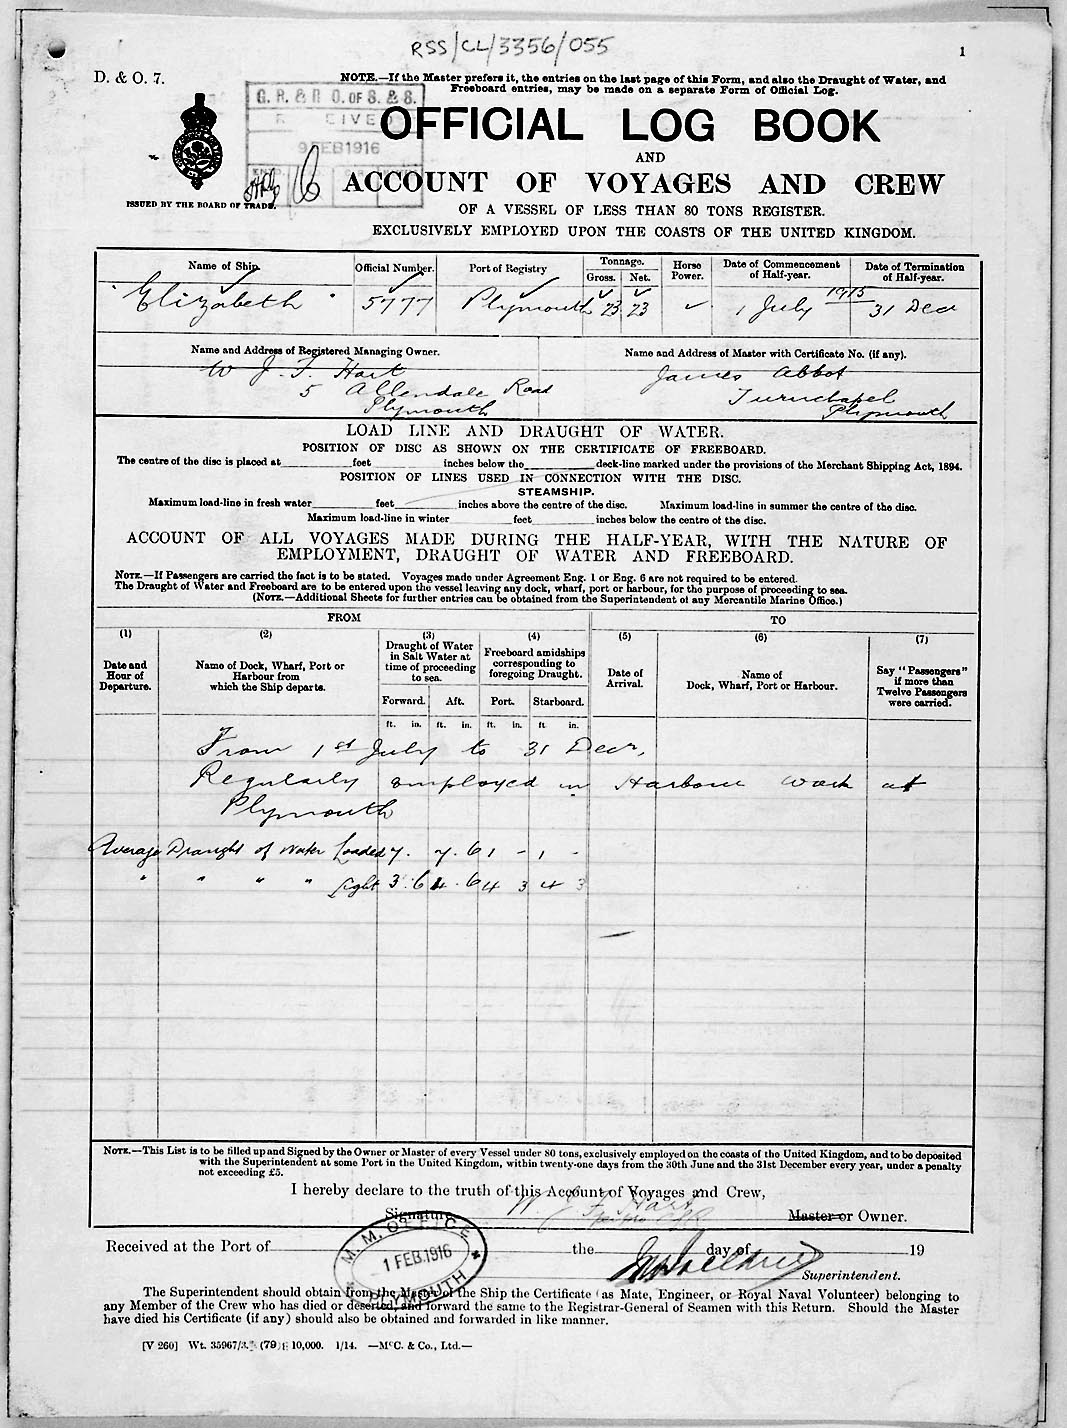 RSS/CL/3356/055
1
D. & O. 7.
NOTE.—If the Master prefers it, the entries on the last page of this Form, and also the Draught of Water, and
Freeboard entries, may be made on a separate Form of Official Log.
G. R. & R O. OF S. & S.
EIVE
9 FEB 1916
OFFICIAL LOG BOOK
AND
ACCOUNT OF VOYAGES AND CREW
ISSUED BY THE BOARD OF TRADE.
OF A VESSEL OF LESS THAN 80 TONS REGISTER.
EXCLUSIVELY EMPLOYED UPON THE COASTS OF THE UNITED KINGDOM.
Name of Ship. Official Number. Port of Registry Tonnage. Horse Power. Date of Commencement of Half-year. Date of Termination of Half-year.
Gross. Net.
"Elizabeth" 5777 Plymouth 23 23 1 July 1915 31 Dec
Name and Address of Registered Managing Owner. Name and Address of Master with Certificate No. (if any).
W J. F. Hart James Abbot
5 Allendale Road Turnchapel
Plymouth Plymouth
LOAD LINE AND DRAUGHT OF WATER.
POSITION OF DISC AS SHOWN ON THE CERTIFICATE OF FREEBOARD.
The centre of the disc is placed at feet inches below the deck-line marked under the provisions of the Merchant Shipping Act, 1894.
POSITION OF LINES USED IN CONNECTION WITH THE DISC.
STEAMSHIP.
Maximum load-line in fresh water feet inches above the centre of the disc. Maximum load-line in summer the centre of the disc.
Maximum load-line in winter feet inches below the centre of the disc.
ACCOUNT OF ALL VOYAGES MADE DURING THE HALF-YEAR, WITH THE NATURE OF
EMPLOYMENT, DRAUGHT OF WATER AND FREEBOARD.
NOTE.—If Passengers are carried the fact is to be stated. Voyages made under Agreement Eng. 1 or Eng. 6 are not required to be entered.
The Draught of Water and Freeboard are to be entered upon the vessel leaving any dock, wharf, port or harbour, for the purpose of proceeding to sea.
(NOTE.—Additional Sheets for further entries can be obtained from the Superintendent of any Mercantile Marine Office.)
FROM TO
(1) (2) (3) (4) (5) (6) (7)
Date and Hour of Departure. Name of Dock, Wharf, Port or Harbour from which the Ship departs. Draught of Water in Salt Water at time of proceeding to sea. Freeboard amidships corresponding to foregoing Draught. Date of Arrival. Name of Dock, Wharf, Port or Harbour. Say "Passengers" if more than Twelve Passengers were carried.
Forward. Aft. Port. Starboard.
ft. in. ft. in. ft. in. ft in.
From 1st July to 31 Decr,
Regularly employed in Harbour work at
Plymouth
Average Draught of Water Loaded 7. 7. 6 1 - 1 -
" " " " Light 3. 6 4. 6 4 3 4 3
NOTE.—This List is to be filled up and Signed by the Owner or Master of every Vessel under 80 tons, exclusively employed on the coasts of the United Kingdom, and to be deposited
with the Superintendent at some Port in the United Kingdom, within twenty-one days from the 30th June and the 31st December every year, under a penalty
not exceeding £5.
I hereby declare to the truth of this Account of Voyages and Crew,
Signature W. J. F. Hart Master or Owner.
Received at the Port of the day of 19
M. M. OFFICE
1 FEB. 1916
PLYMOUTH
Superintendent.
The Superintendent should obtain from the Master of the Ship the Certificate (as Mate, Engineer, or Royal Naval Volunteer) belonging to
any Member of the Crew who has died or deserted, and forward the same to the Registrar-General of Seamen with this Return. Should the Master
have died his Certificate (if any) should also be obtained and forwarded in like manner.
[V 260] Wt. 35967/3. (79) 10,000. 1/14. —McC. & Co., Ltd.—